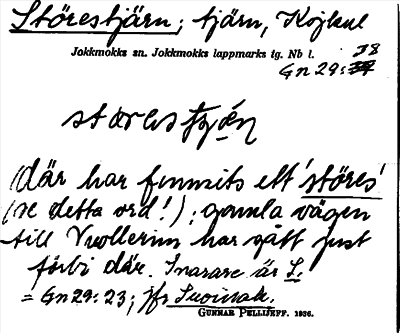 Störestjärn; tjärn, Kojkul
Jokkmokks sn. Jokkmokks lappmarks tg. Nb l.
Gn 29: 38
(där har funnits ett 'störes'
(se detta ord!); gamla vägen
till Vuollerim har gått just
förbi där. Snarare är S.
= Gn 29: 23; jfr Suoinak.
GUNNAR PELLIJEFF. 1936.